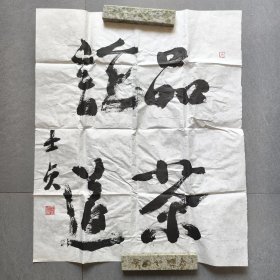 品茶
論道
士贞